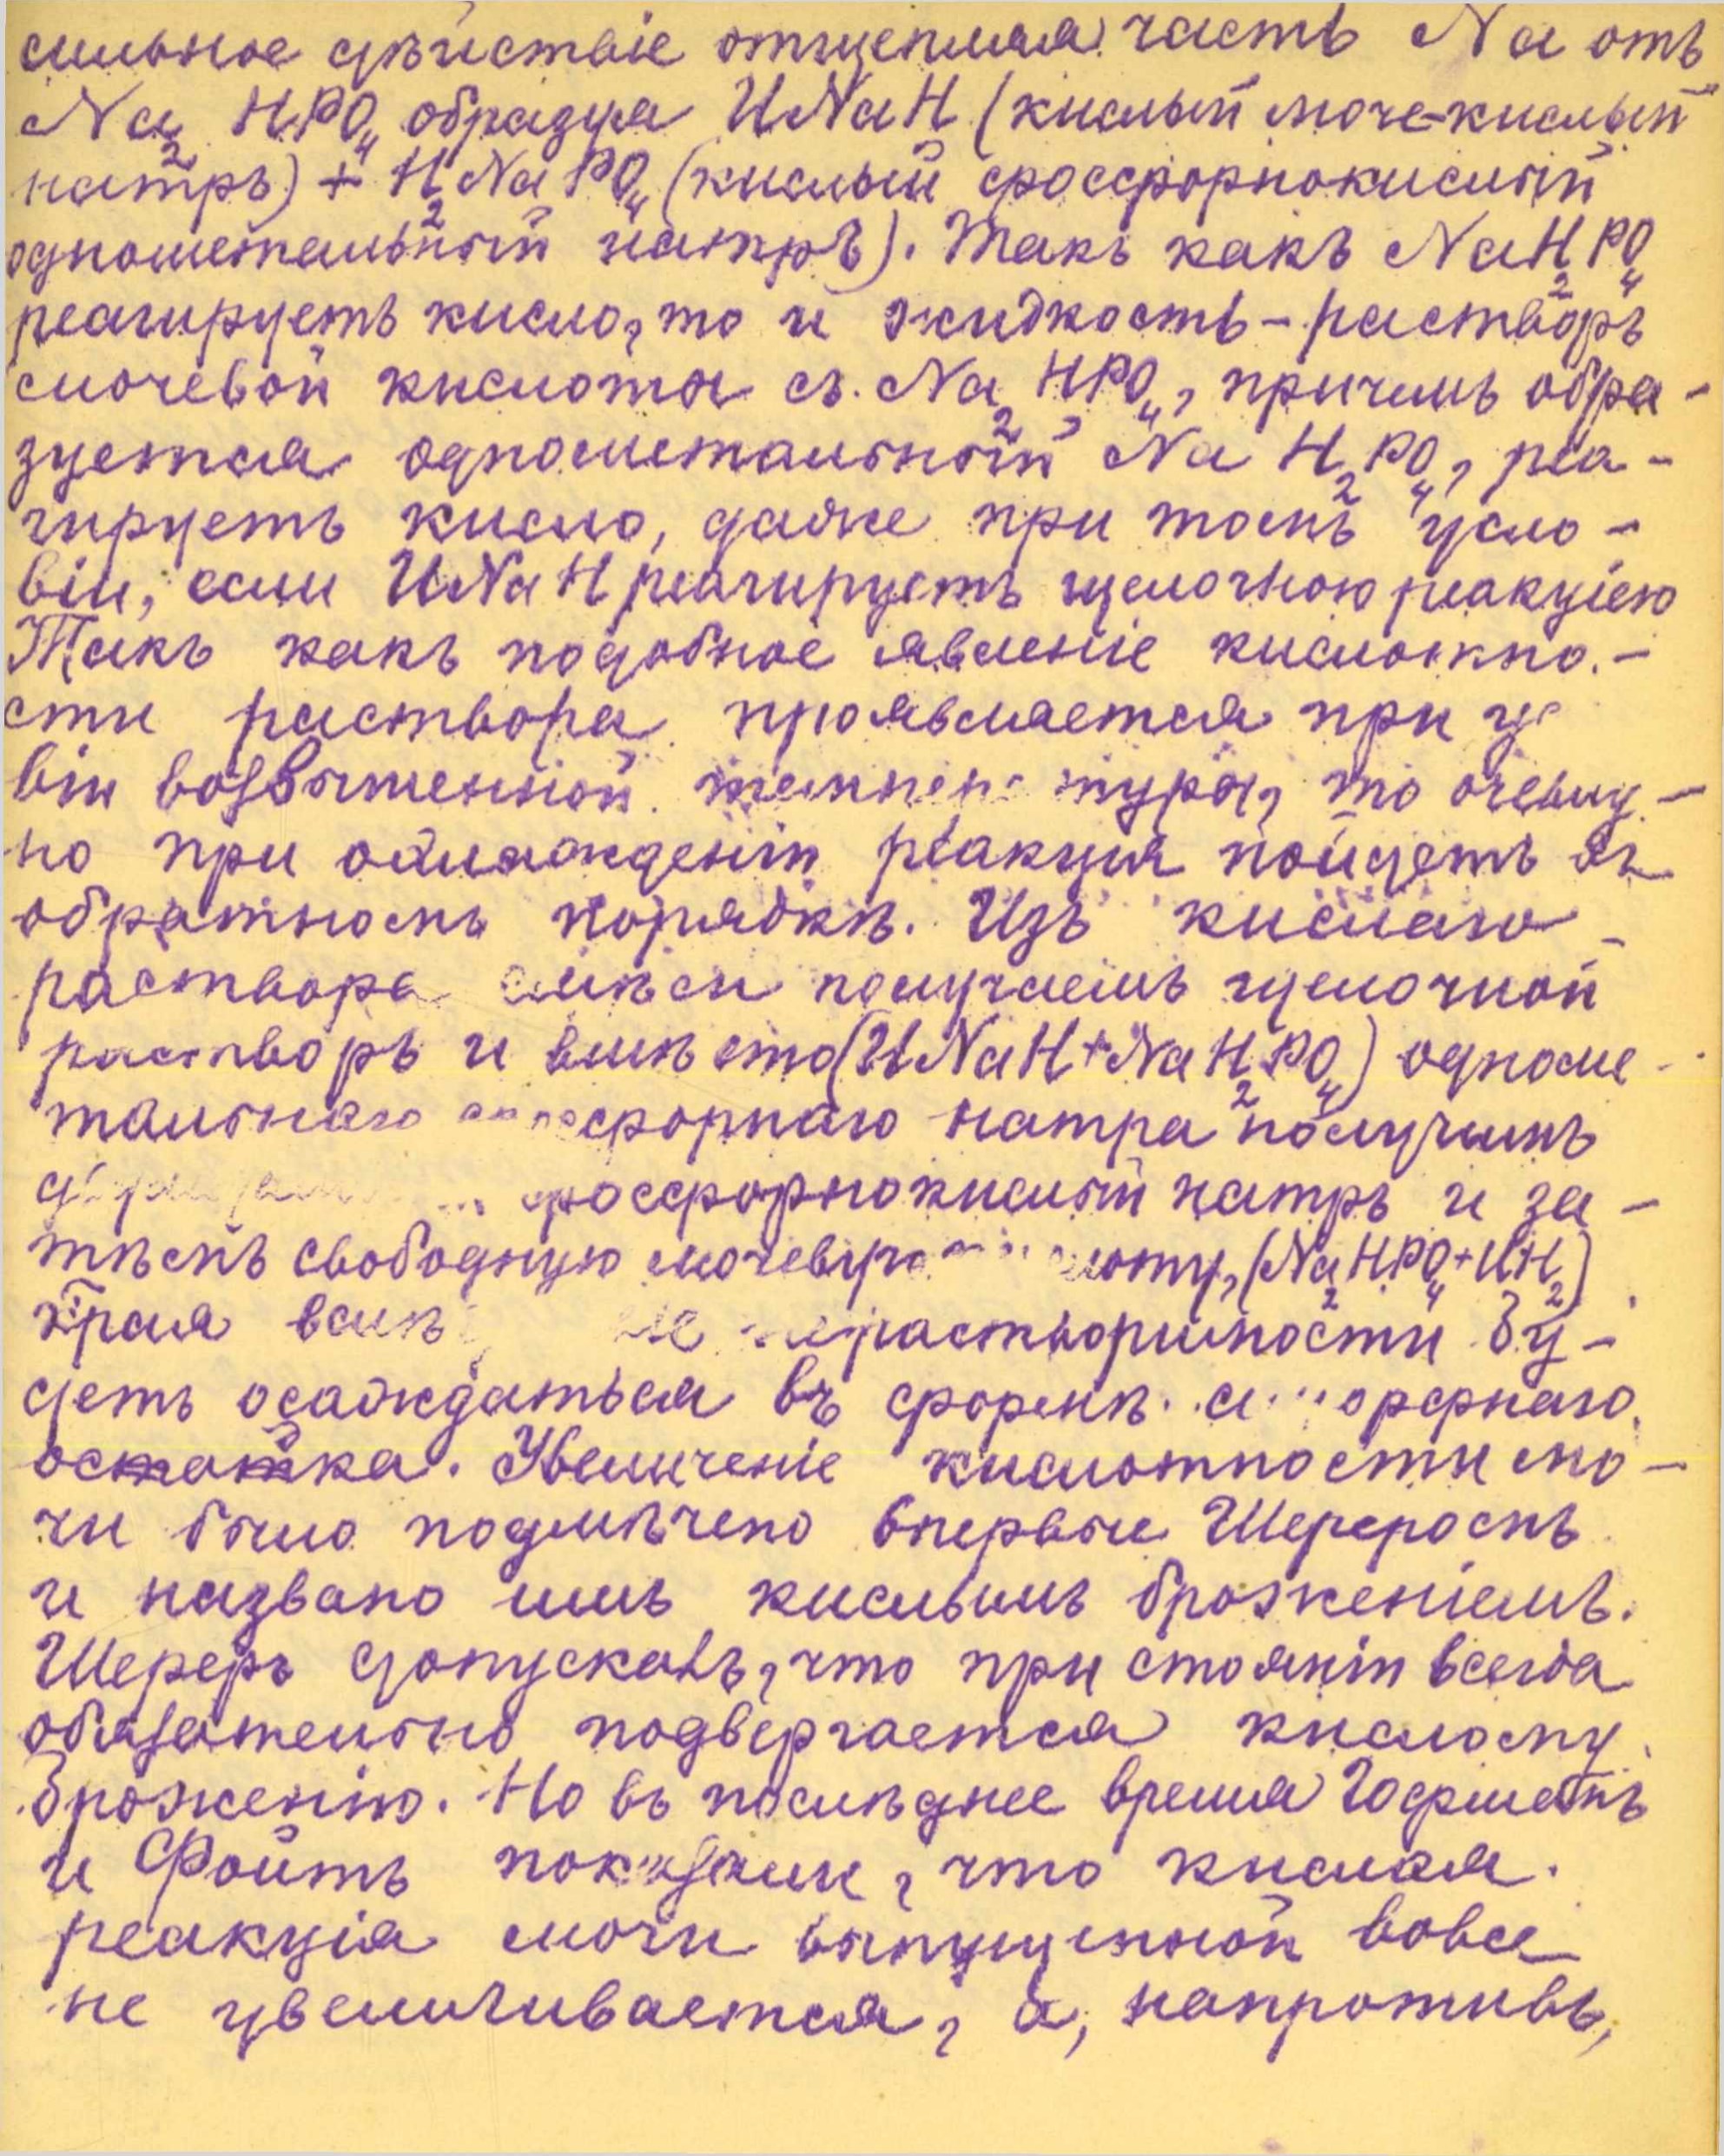 сильное дѣйствіе отщепляя часть Na отъ
Na₂HPO₄ образуя UNaH (кислый моче-кислый
натръ) + H₂NaPO₄ (кислый фосфорнокислый
однометальный натръ). Такъ какъ NaH₂PO₄
реагируетъ кисло, то и жидкость - растворъ
мочевой кислоты съ Na₂HPO₄, причемъ обра-
зуется однометальный NaH₂PO₄, реа-
гируетъ кисло, даже при томъ усло-
віи, если UNaH реагируетъ щелочною реакціею
Такъ какъ подобное явленіе кислотно-
сти раствора проявляется при
віи возвышенной то очевид-
но при охлажденіи реакція пойдетъ въ
обратномъ порядкѣ. Изъ кислаго
раствора смѣси получаемъ щелочной
растворъ и вмѣсто (UNaH+NaH₂PO₄) одноме-
тальнаго натра получимъ
фосфорнокислый натръ и за-
тѣмъ свободную (Na₂HPO₄+UH₂)
бу-
детъ осаждаться въ формѣ
остатка. Увеличеніе кислотности мо-
чи было подмѣчено впервые Шереромъ
и названо имъ кислымъ броженіемъ.
Шереръ допускалъ, что при стояніи всегда
обязательно подвергается кислому
броженію. Но въ послѣднее время Гофманъ
и Фойтъ показали, что кислая
реакція мочи выпущенной вовсе
не увеличивается, а, напротивъ,